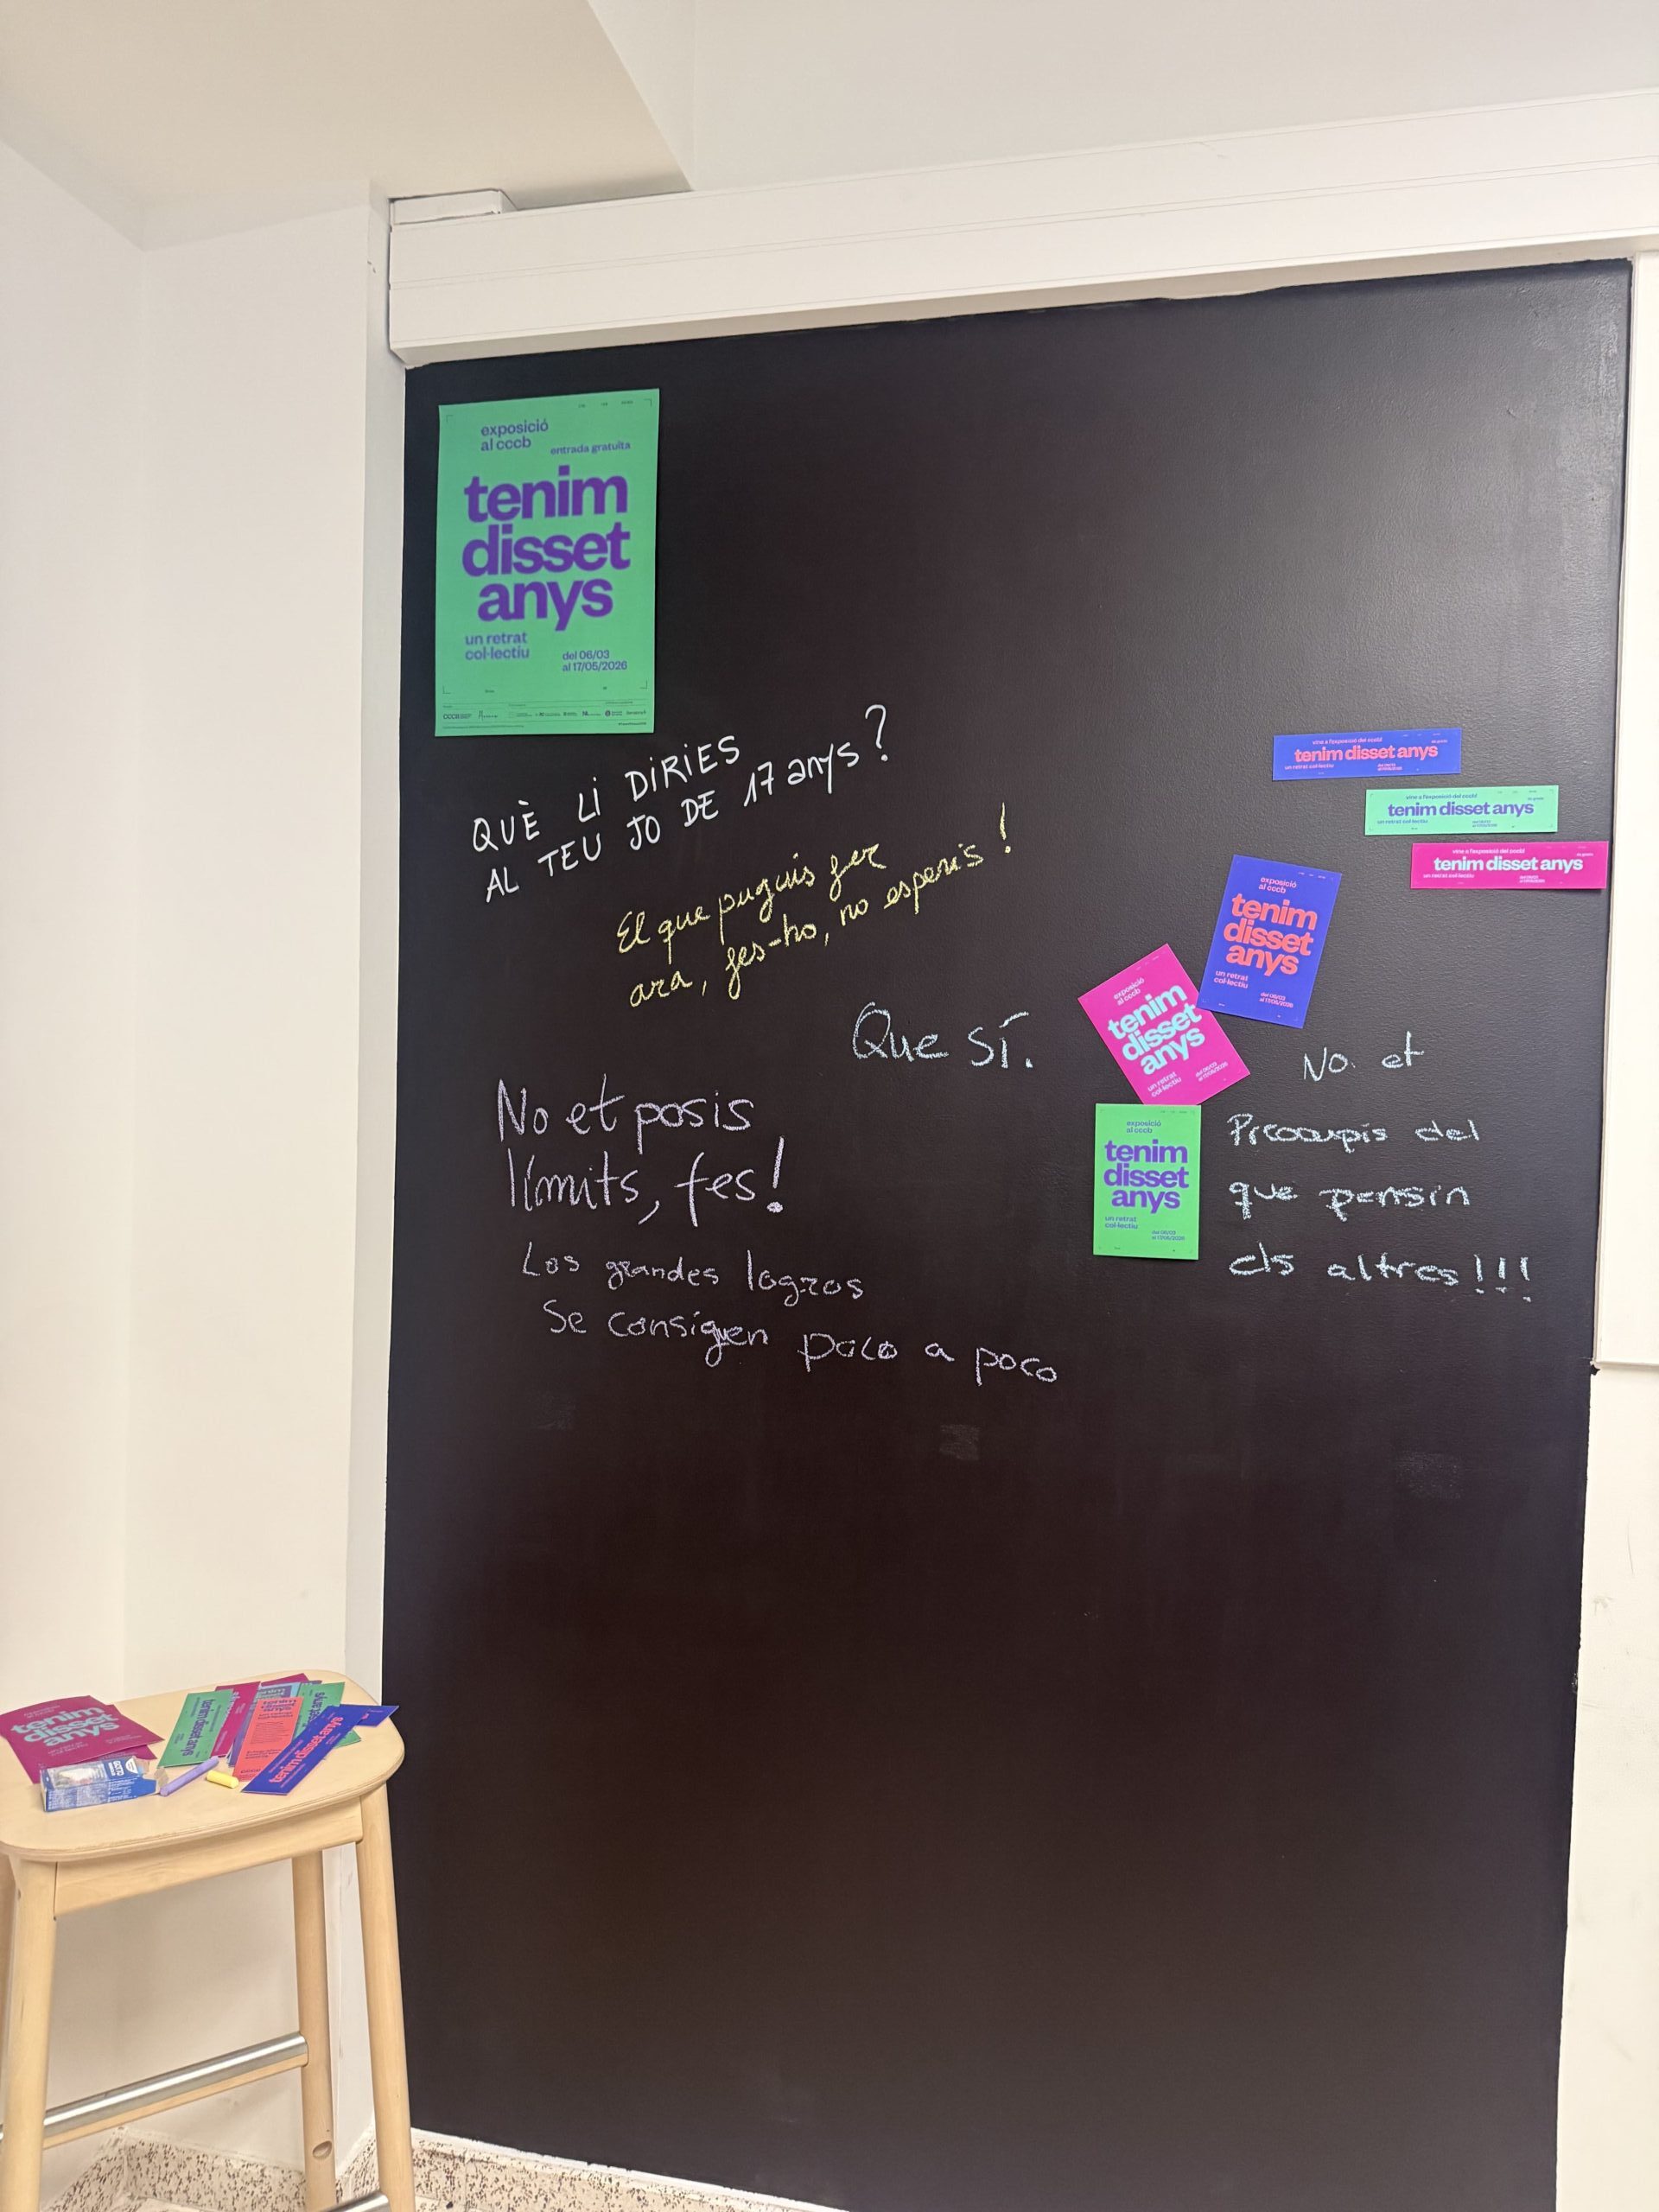 exposició
al cccb
entrada gratuïta
tenim
disset
anys
un retrat
col·lectiu
del 06/03
al 17/05/2026
QUÈ LI DIRIES
AL TEU JO DE 17 anys?
El que puguis fer
ara, fes-ho, no esperis!
Que sí.
No et posis
límits, fes!
Los grandes logros
Se consiguen poco a poco
vine a l'exposició del cccb
tenim disset anys
un retrat col·lectiu
vine a l'exposició del cccb
tenim disset anys
un retrat col·lectiu
vine a l'exposició del cccb
tenim disset anys
un retrat col·lectiu
exposició
al cccb
tenim
disset
anys
un retrat
col·lectiu
del 06/03
al 17/05/2026
exposició
al cccb
tenim
disset
anys
un retrat
col·lectiu
del 06/03
al 17/05/2026
exposició
al cccb
tenim
disset
anys
un retrat
col·lectiu
del 06/03
al 17/05/2026
No. et
Preocupis del
que pensin
els altres!!!
tenim
disset
anys
tenim disset anys
tenim disset anys